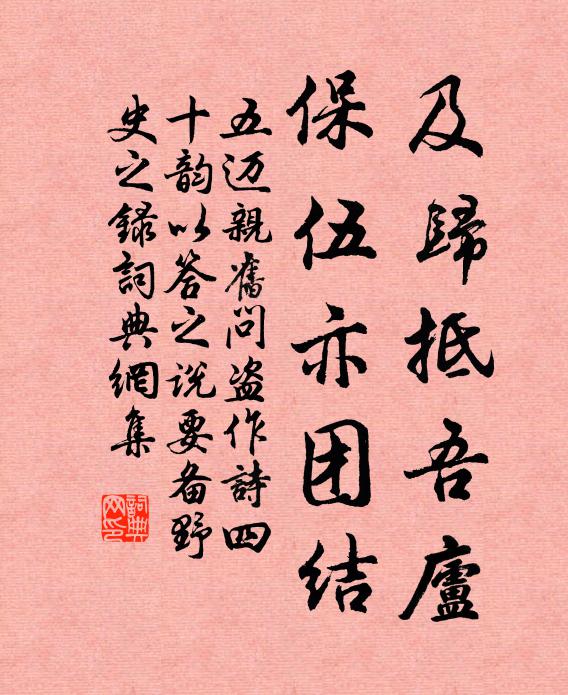 及歸抵吾廬
保伍亦团结
五迈親舊问盗作詩四
十韵以答之说要备野
史之録詞典網集
詞典网印